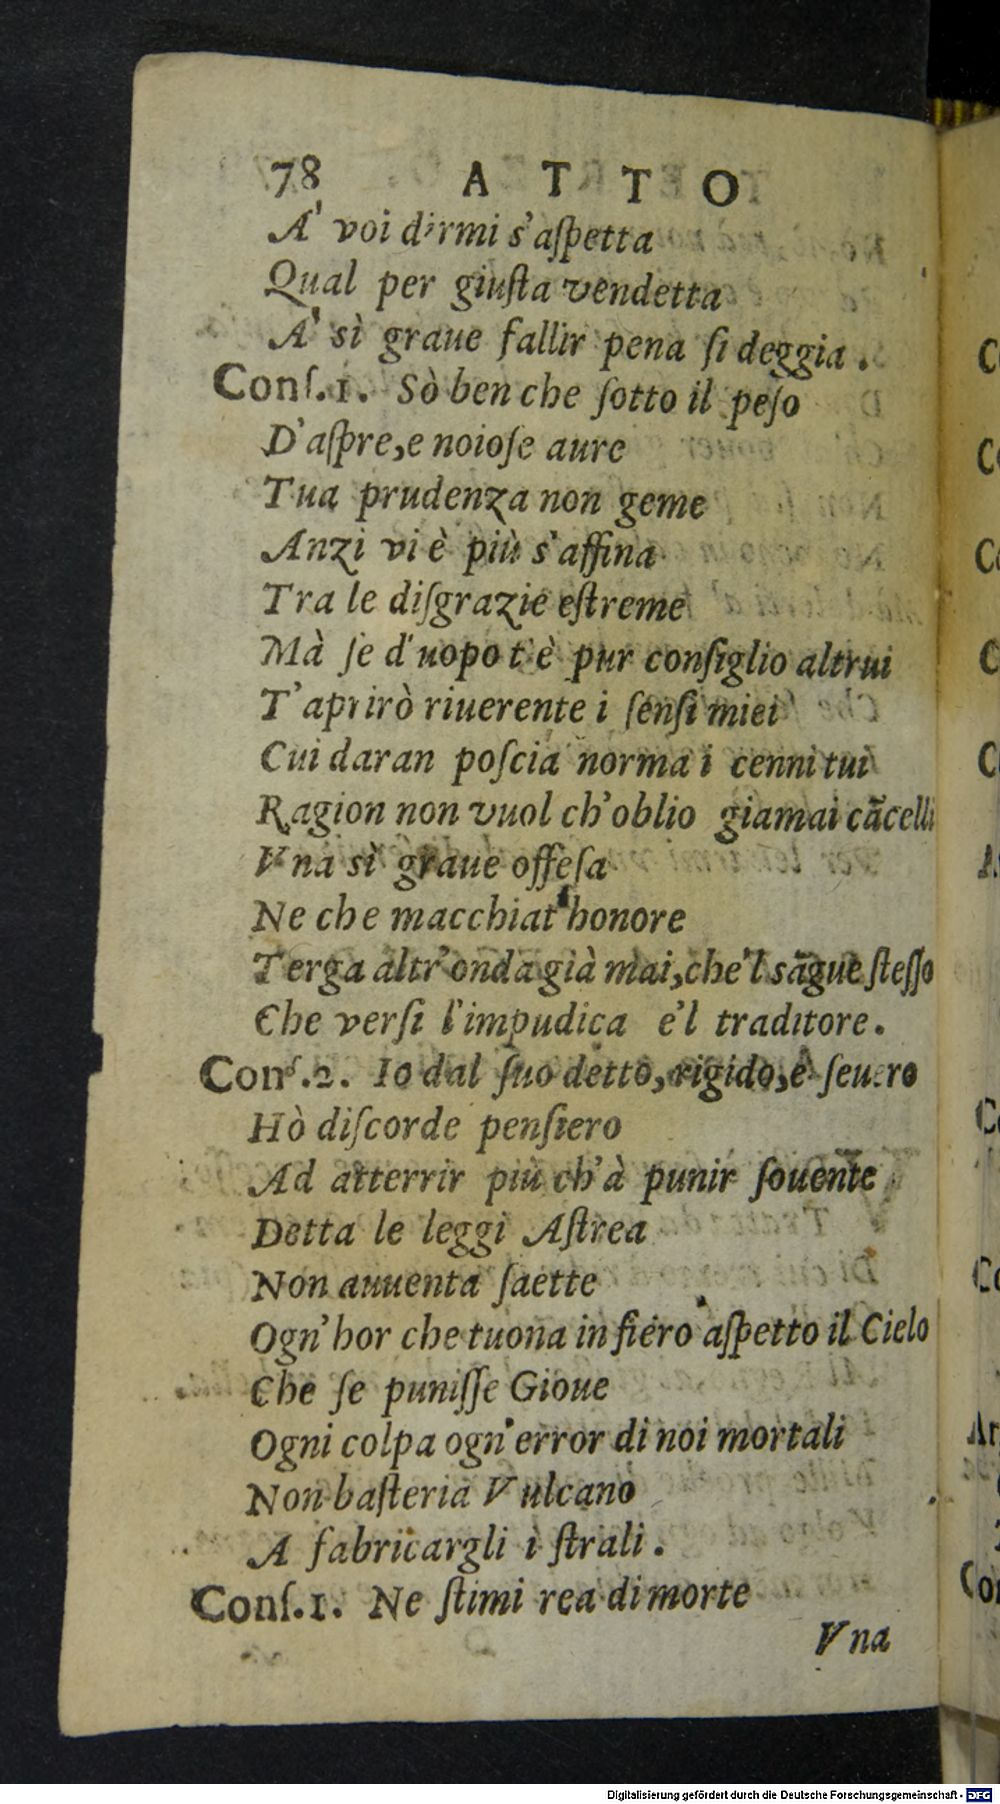 78 ATTO
A' voi dirmi s'aſpetta
Qual per giuſta vendetta
A' sì graue fallir pena ſi deggia.
Conſ.1. Sò ben che ſotto il peſo
D'aſpre,e noioſe aure
Tua prudenza non geme
Anzi vi è più s'affina
Tra le diſgrazie eſtreme
Mà ſe d'uopo t'è pur conſiglio altrui
T'aprirò riuerente i ſenſi miei
Cui daran poſcia norma i cenni tui
Ragion non vuol ch'oblio giamai cãcelli
Vna sì graue offeſa
Ne che macchiat'honore
Terga altr'onda già mai,che'l sãgue ſteſſo
Che verſi l'impudica e'l traditore.
Conſ.2. Io dal ſuo detto,rigido,e ſeuero
Hò diſcorde penſiero
Ad atterrir più ch'à punir ſouente
Detta le leggi Aſtrea
Non auuenta ſaette
Ogn'hor che tuona in fiero aſpetto il Cielo
Che ſe puniſſe Gioue
Ogni colpa ogn'error di noi mortali
Non baſteria Vulcano
A fabricargli i ſtrali.
Conſ.1. Ne ſtimi rea di morte
Vna
Digitalisierung gefördert durch die Deutsche Forschungsgemeinschaft - DFG